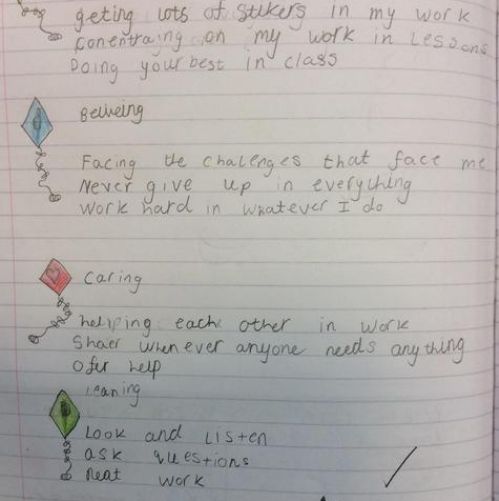 geting lots of stikers in my work
conentraing on my work in Lessons
Doing your best in class
Belieing
Facing the chalenges that face me
Never give up in everything
Work hard in whatever I do
caring
helping each other in work
Shaer whenever anyone needs anything
ofer help
leaning
Look and Listen
ask questions
neat work